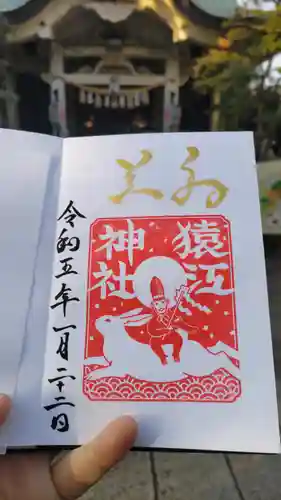 猿江
神社
令和五年一月二十二日